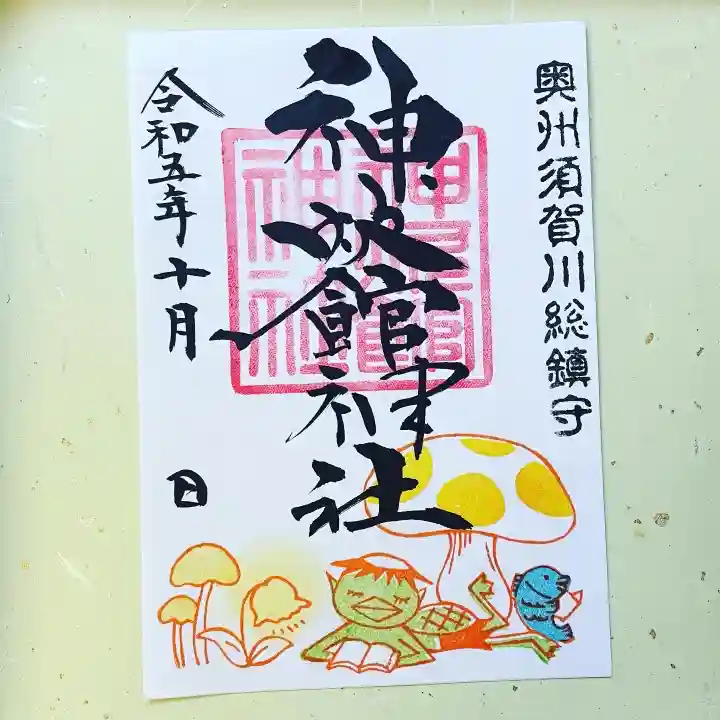 奥州須賀川総鎮守
神炊館神社
令和五年十月 日